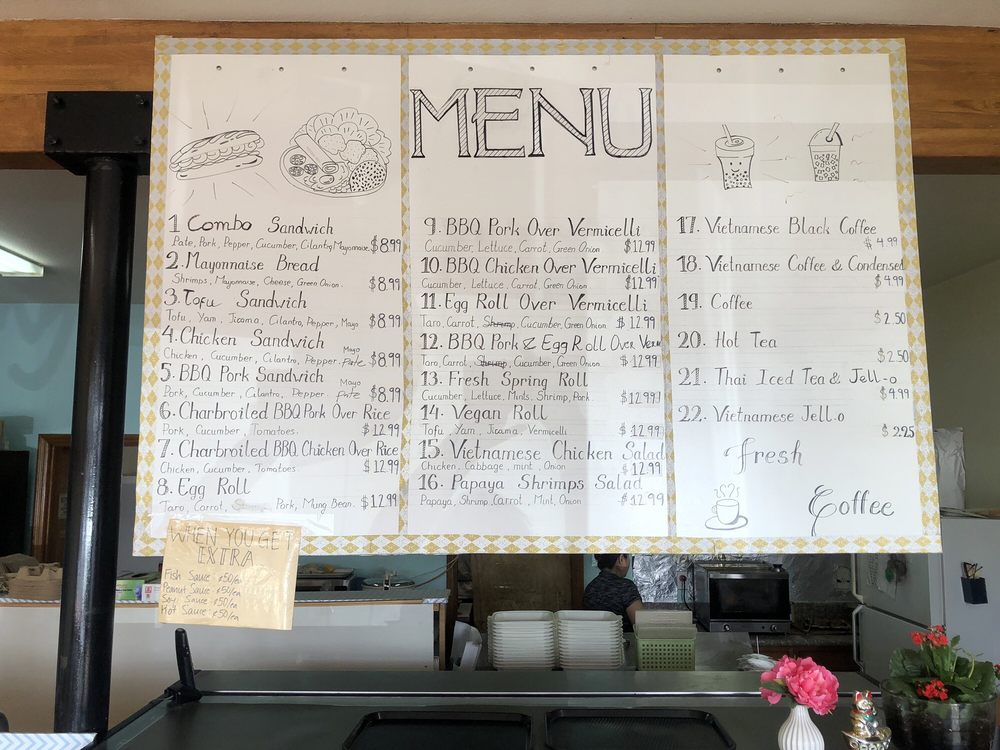 MENU
1 Combo Sandwich
Pate, Pork, Pepper, Cucumber, Cilantro, Mayonnaise $8.99
2. Mayonnaise Bread
Shrimps, Mayonnaise, Cheese, Green Onion. $8.99
3. Tofu Sandwich
Tofu, Yam, Jicama, Cilantro, Pepper, Mayo $8.99
4. Chicken Sandwich
Mayo
Chicken, Cucumber, Cilantro, Pepper. Pate $8.99
5. BBQ Pork Sandwich
Mayo
Pork, Cucumber, Cilantro, Pepper Pate $8.99
6. Charbroiled BBQ Pork Over Rice
Pork, Cucumber, Tomatoes. $12.99
7. Charbroiled BBQ Chicken Over Rice
Chicken, Cucumber, Tomatoes. $12.99
8. Egg Roll
Taro, Carrot, Pork, Mung Bean. $12.99
9. BBQ Pork Over Vermicelli
Cucumber, Lettuce, Carrot, Green Onion $12.99
10. BBQ Chicken Over Vermicelli
Cucumber, Lettuce, Carrot, Green Onion. $12.99
11. Egg Roll Over Vermicelli
Taro, Carrot, Shrimp, Cucumber, Green Onion $12.99
12. BBQ Pork & Egg Roll Over Verm
Taro, Carrot, Shrimp, Cucumber, Green Onion $12.99
13. Fresh Spring Roll
Cucumber, Lettuce, Mints, Shrimp, Pork. $12.99
14. Vegan Roll
Tofu, Yam, Jicama, Vermicelli $12.99
15. Vietnamese Chicken Salad
Chicken, Cabbage, mint, Onion $12.99
16. Papaya Shrimps Salad
Papaya, Shrimp, Carrot, Mint, Onion $12.99
17. Vietnamese Black Coffee
$4.99
18. Vietnamese Coffee & Condensed
$4.99
19. Coffee
$2.50
20. Hot Tea
$2.50
21. Thai Iced Tea & Jell-o
$4.99
22. Vietnamese Jell.o
$2.25
Fresh
Coffee
WHEN YOU GET
EXTRA
Fish Sauce ¢50/ea
Peanut Sauce ¢50/ea
Soy Sauce ¢50/ea
Hot Sauce ¢50/ea